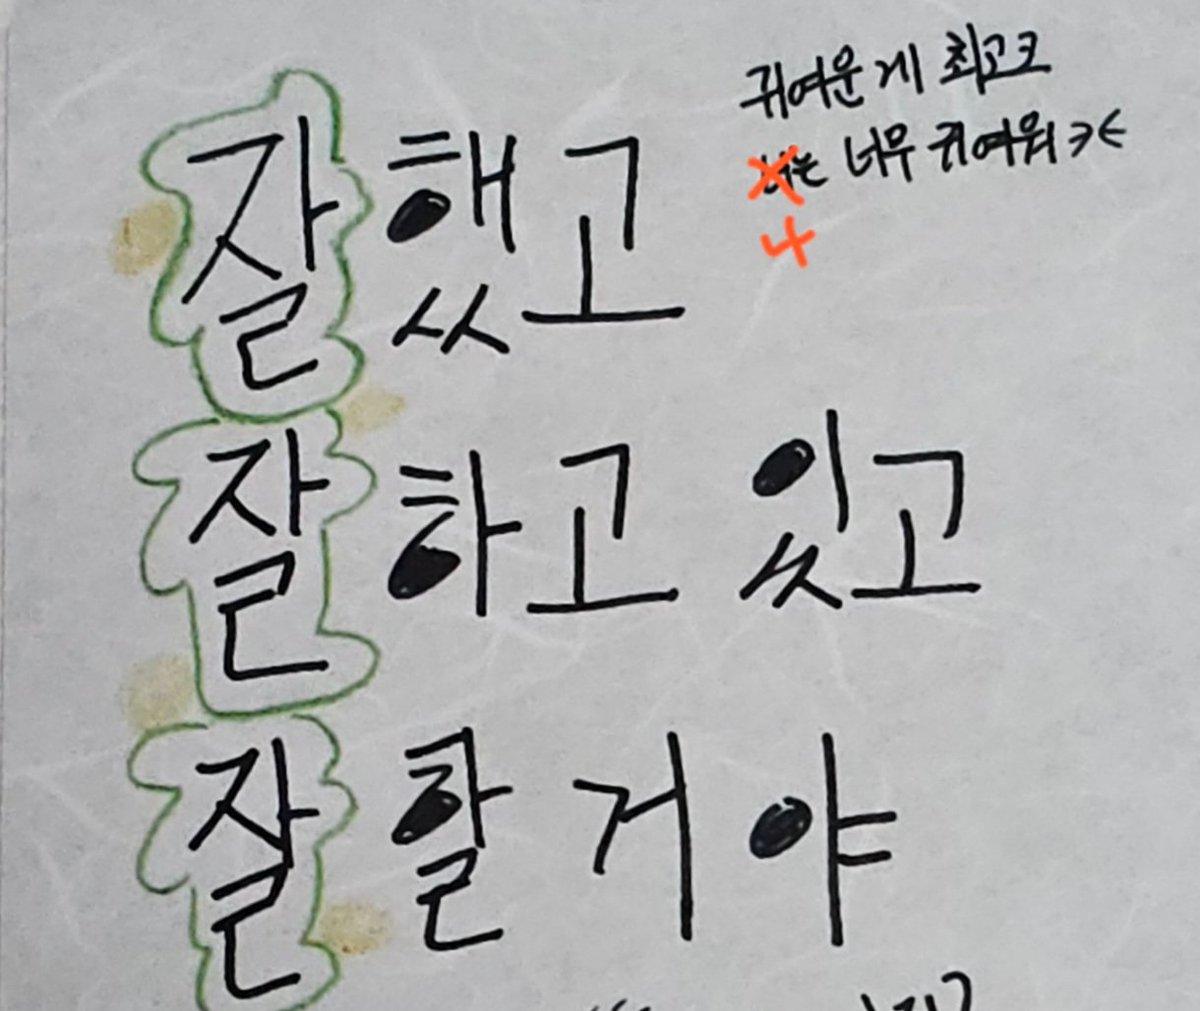 잘했고
잘하고 있고
잘할 거야
귀여운 게 최고크
너무 귀여워
나